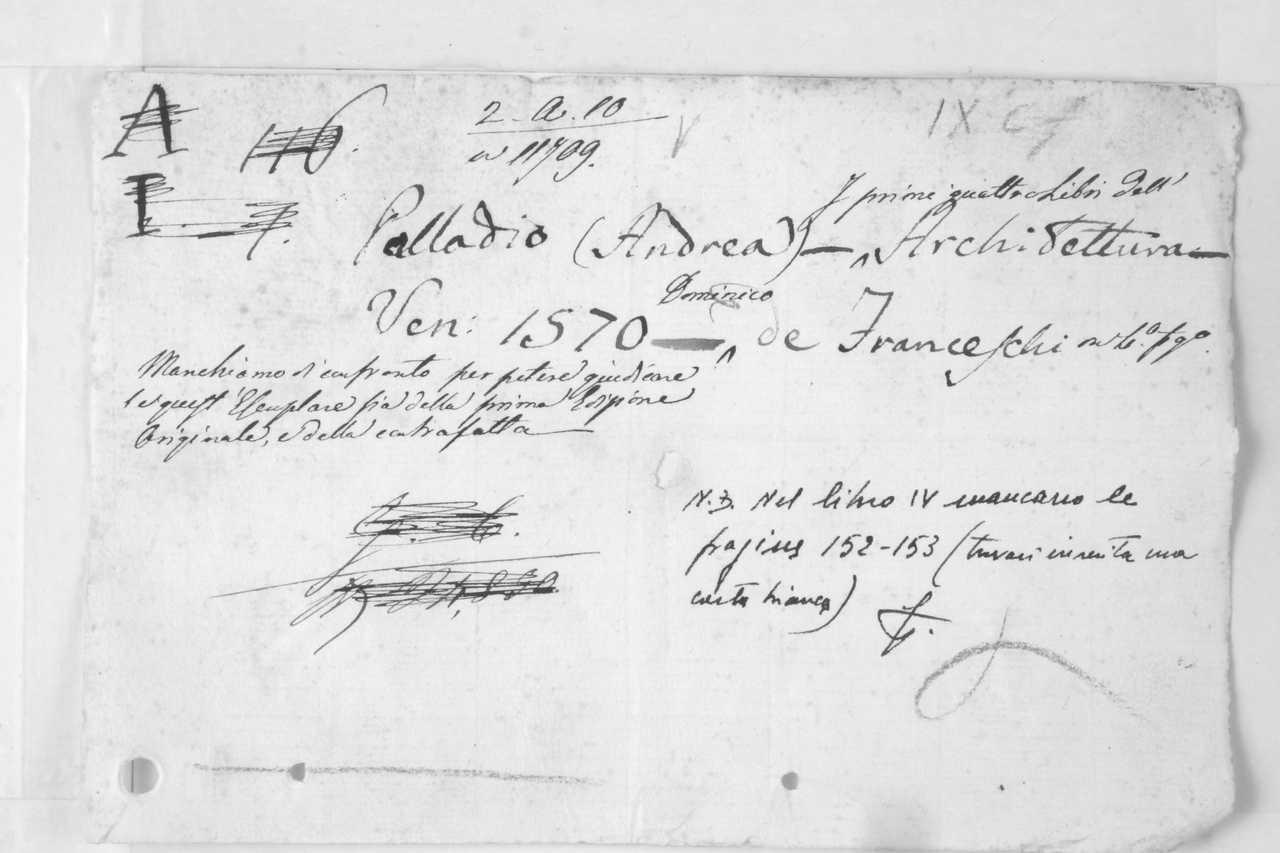 A
116.
2. A. 10
n 11709.
IX C
I
7.
I primi quattro Libri dell'
Palladio (Andrea) — Architettura —
Dominico
Ven: 1570 — de Franceschi in
Manchiamo di confronto per potere giudicare
se quest' Esemplare sia della prima Edizione
Originale, o della contrafatta
N.B. Nel libro IV mancano le
pagine 152-153 (trovasi inserita una
carta bianca)